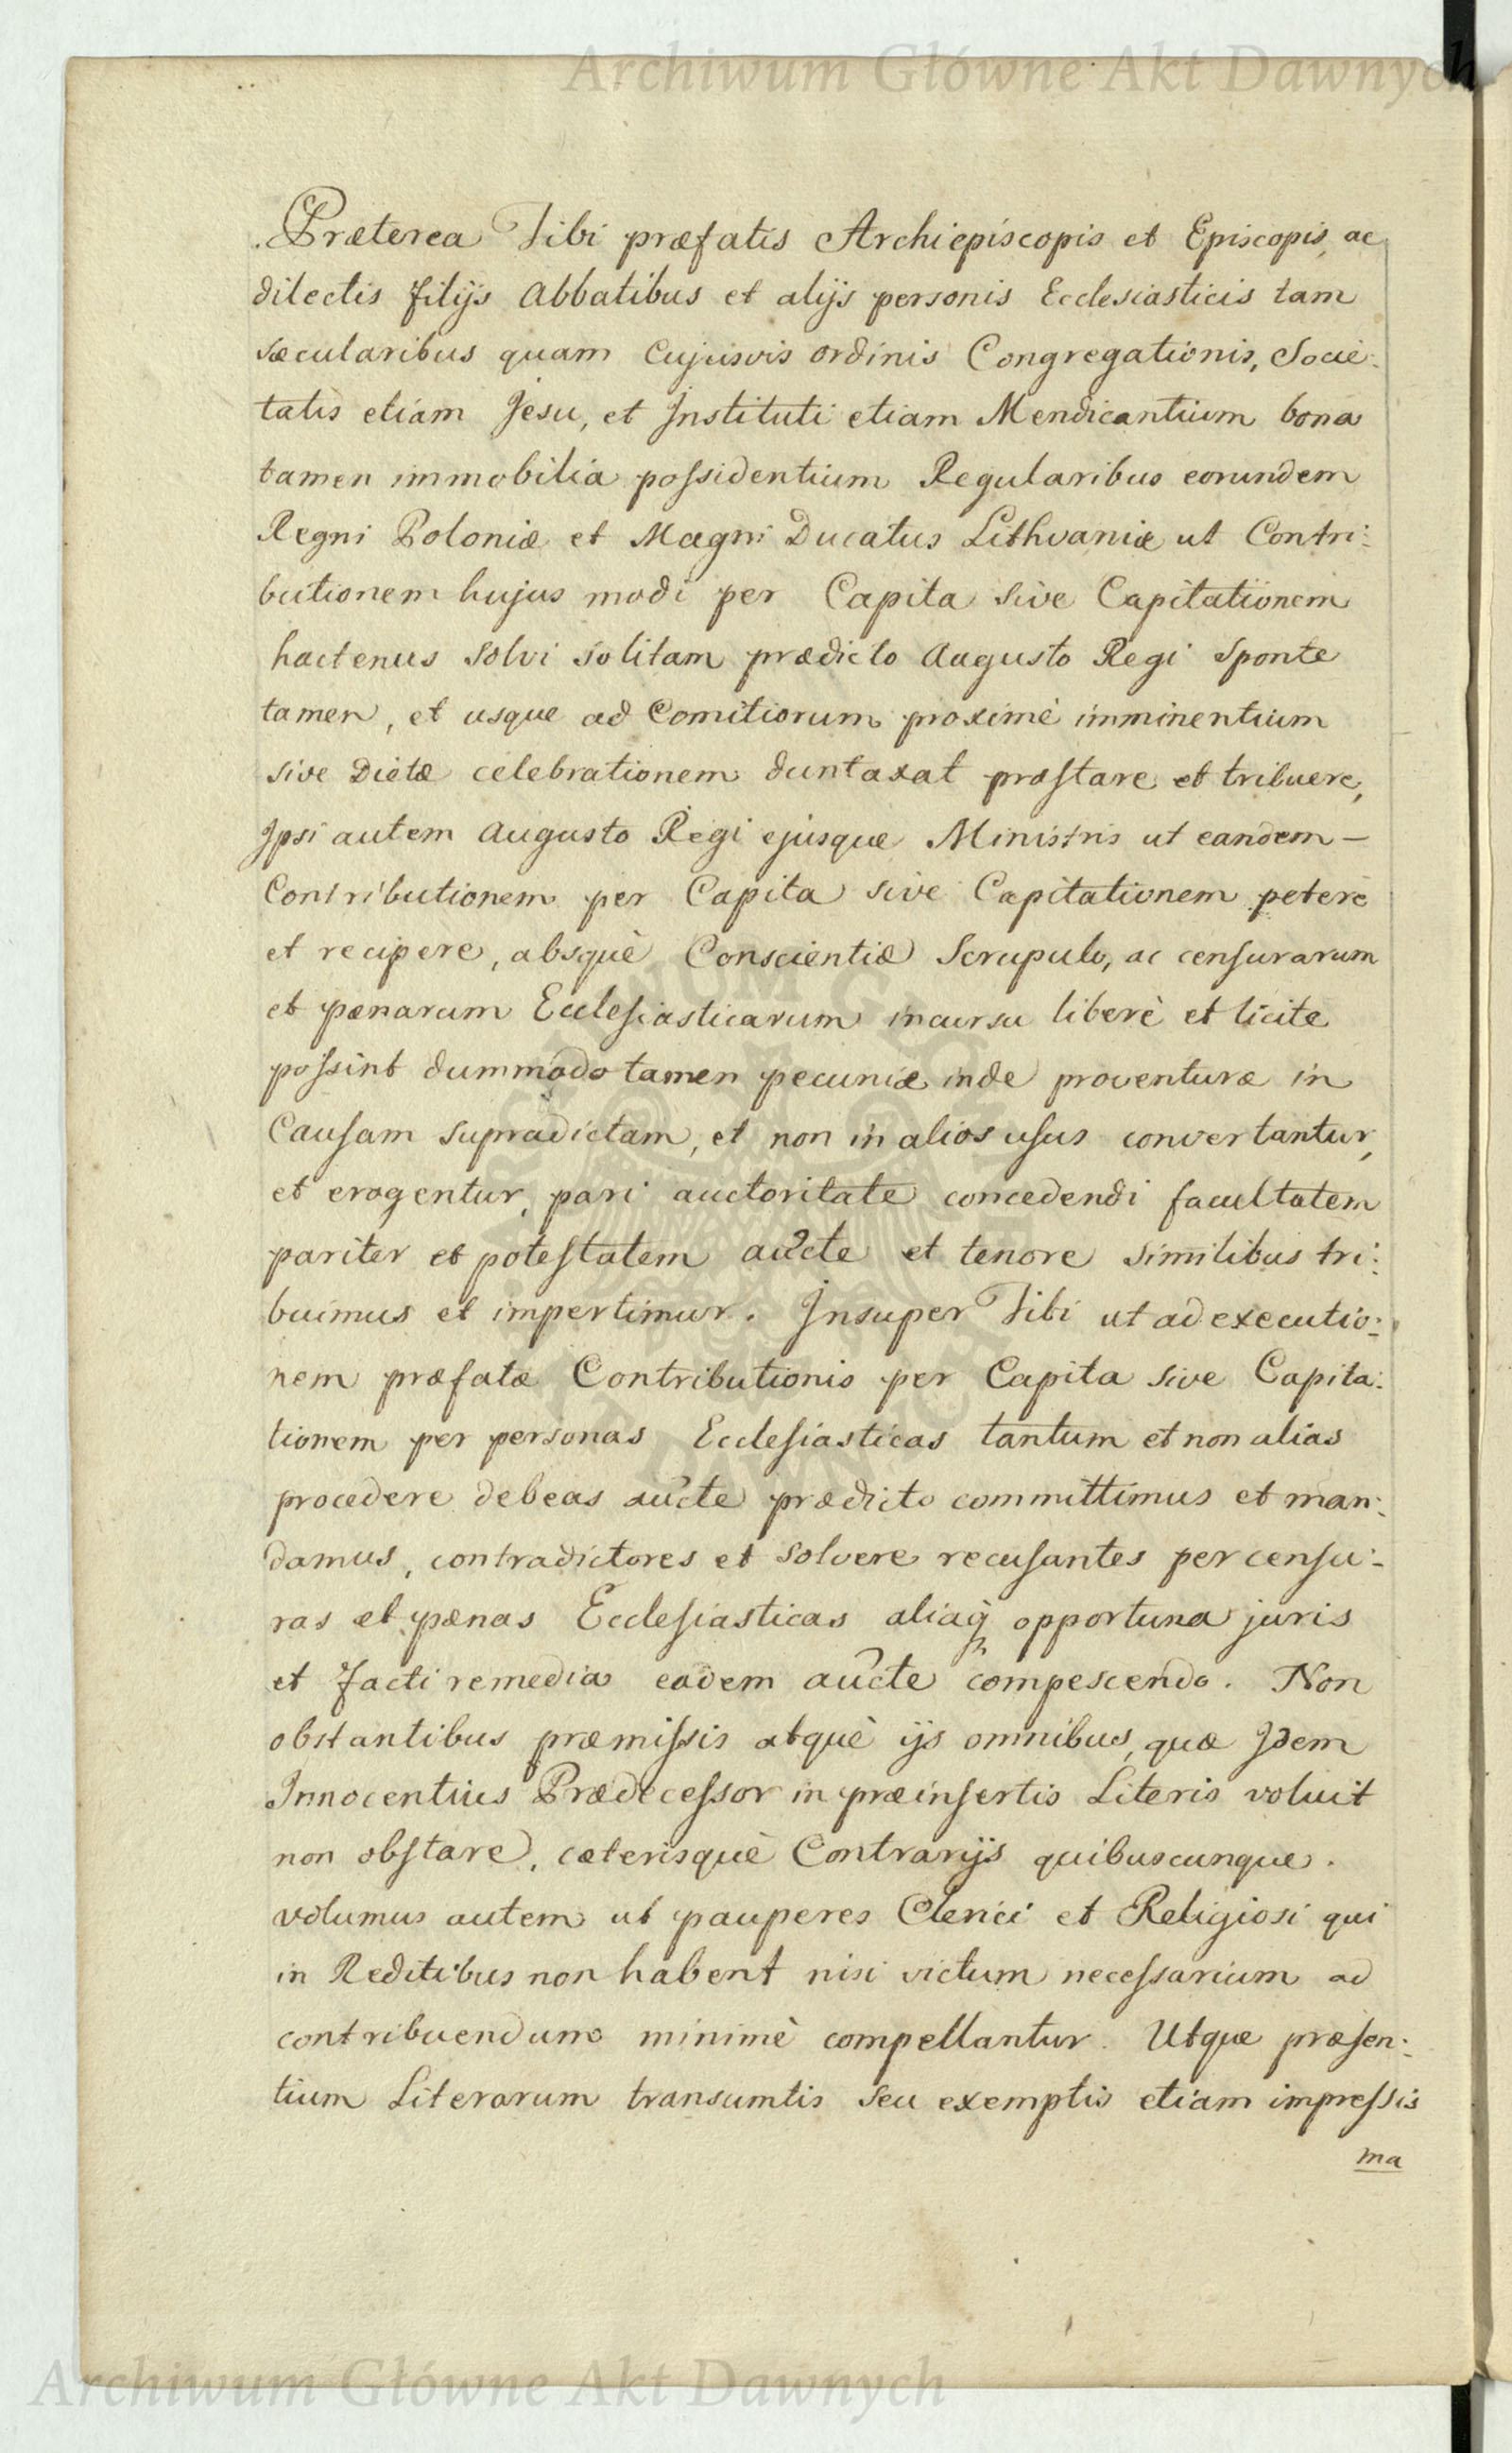 Archiwum Główne Akt Dawnych
Præterea Tibi præfatis Archiepiscopis et Episcopis, ac
dilectis filijs Abbatibus et alijs personis Ecclesiasticis tam
sæcularibus quam Cujusvis ordinis Congregationis, Socie:
tatis etiam Jesu, et Instituti etiam Mendicantium bona
tamen immobilia possidentium Regularibus eorundem
Regni Poloniæ et Magni Ducatus Lithvaniæ ut Contri:
butionem hujus modi per Capita sive Capitationem
hactenus solvi solitam prædicto Augusto Regi sponte
tamen, et usque ad Comitiorum proximè imminentium
sive Dietæ celebrationem duntaxat præstare et tribuere,
Ipsi autem Augusto Regi ejusque Ministris ut eandem —
Contributionem per Capita sive Capitationem petere
et recipere, absquè Conscientiæ Scrupulo, ac censurarum
et pænarum Ecclesiasticarum incursu liberè et licite
possint dummodo tamen pecuniæ inde proventuræ in
Causam supradictam, et non in alios usus convertantur,
et erogentur, pari auctoritate concedendi facultatem
pariter et potestatem aûcte et tenore similibus tri:
buimus et impertimur. Insuper Tibi ut ad executio:
nem præfatæ Contributionis per Capita sive Capita:
tionem per personas Ecclesiasticas tantum et non alias
procedere debeas aûcte prædicto committimus et man:
damus, contradictores et solvere recusantes per censu:
ras et pænas Ecclesiasticas aliaq̀ opportuna juris
et facti remedia eadem aûcte compescendo. Non
obstantibus præmissis atquè ijs omnibus, quæ Idem
Innocentius Prædecessor in præinsertis Literis voluit
non obstare, cæterisquè Contrarijs quibuscunque.
volumus autem ut pauperes Clerici et Religiosi qui
in Reditibus non habent nisi victum necessarium ad
contribuendum minimè compellantur. Utque præsen:
tium Literarum transumtis seu exemptis etiam impressis
ma
Archiwum Główne Akt Dawnych